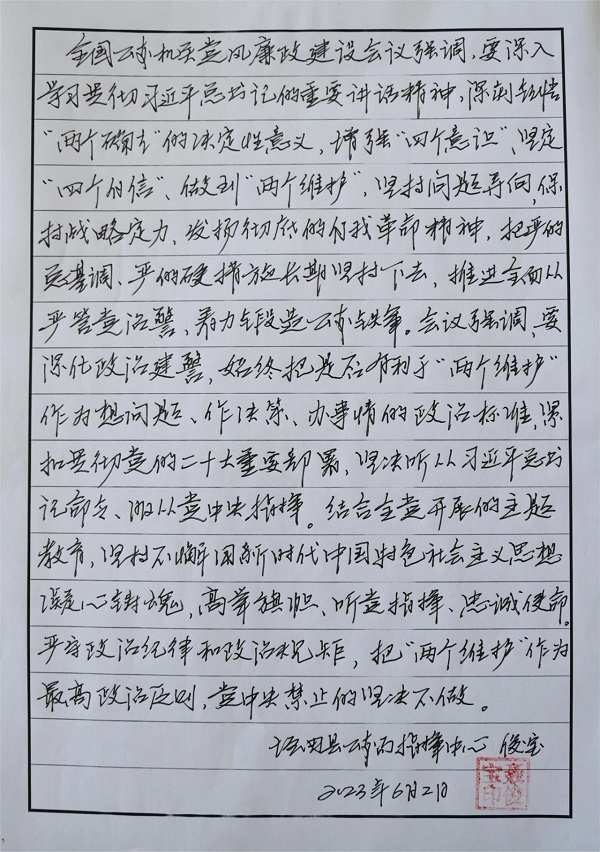 全国公安机关党风廉政建设会议强调,要深入
学习贯彻习近平总书记的重要讲话精神,深刻领悟
“两个确立”的决定性意义,增强“四个意识”、坚定
“四个自信”、做到“两个维护”,坚持问题导向,保
持战略定力,发扬彻底的自我革命精神,把严的
总基调、严的硬措施长期坚持下去,推进全面从
严管党治警,着力锻造公安铁军。会议强调,要
深化政治建警,始终把是否有利于“两个维护”
作为想问题、作决策、办事情的政治标准,紧
扣贯彻党的二十大重要部署,坚决听从习近平总书
记命令、服从党中央指挥。结合全党开展的主题
教育,坚持不懈用新时代中国特色社会主义思想
凝心铸魂,高举旗帜、听党指挥、忠诚使命。
严守政治纪律和政治规矩,把“两个维护”作为
最高政治原则,党中央禁止的坚决不做。
县公安局指挥中心 俊宝
2023年6月2日